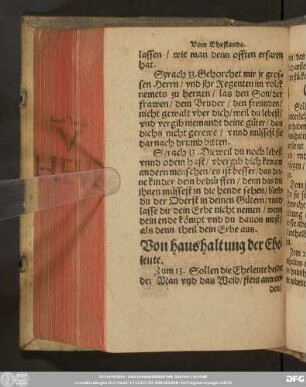 Vom Ehestande.
lassen / wie man denn offten erfaren
hat.
Syrach 33. Gehorchet mir jr gros-
sen Herrn / vnd jhr Regenten im volck
nemets zu hertzen / las den Son / der
frawen / dem Bruder / den freunden /
nicht gewalt vber dich / weil du lebest /
vnd vergib niemandt deine güter / das
dichs nicht gerewe / vnnd müssest sie
darnach drumb bitten.
Syrach 33. Dieweil du noch lebest
vnnd odem hast / vbergib dich keinem
andern menschen / es ist besser / das dei-
ne kinder dein bedürffen / denn das du
ihnen müssest in die hende sehen / bleib
du der Oberst in deinen Gütern / vnd
lasse dir dein Erbe nicht nemen / wenn
dein ende kömpt vnd du dauon must /
als denn theil dein Erbe aus.
Von haushaltung der Ehe
leute.
Zum 13. Sollen die Eheleute beide
der Man vnd das Weib / stets anwen-
den